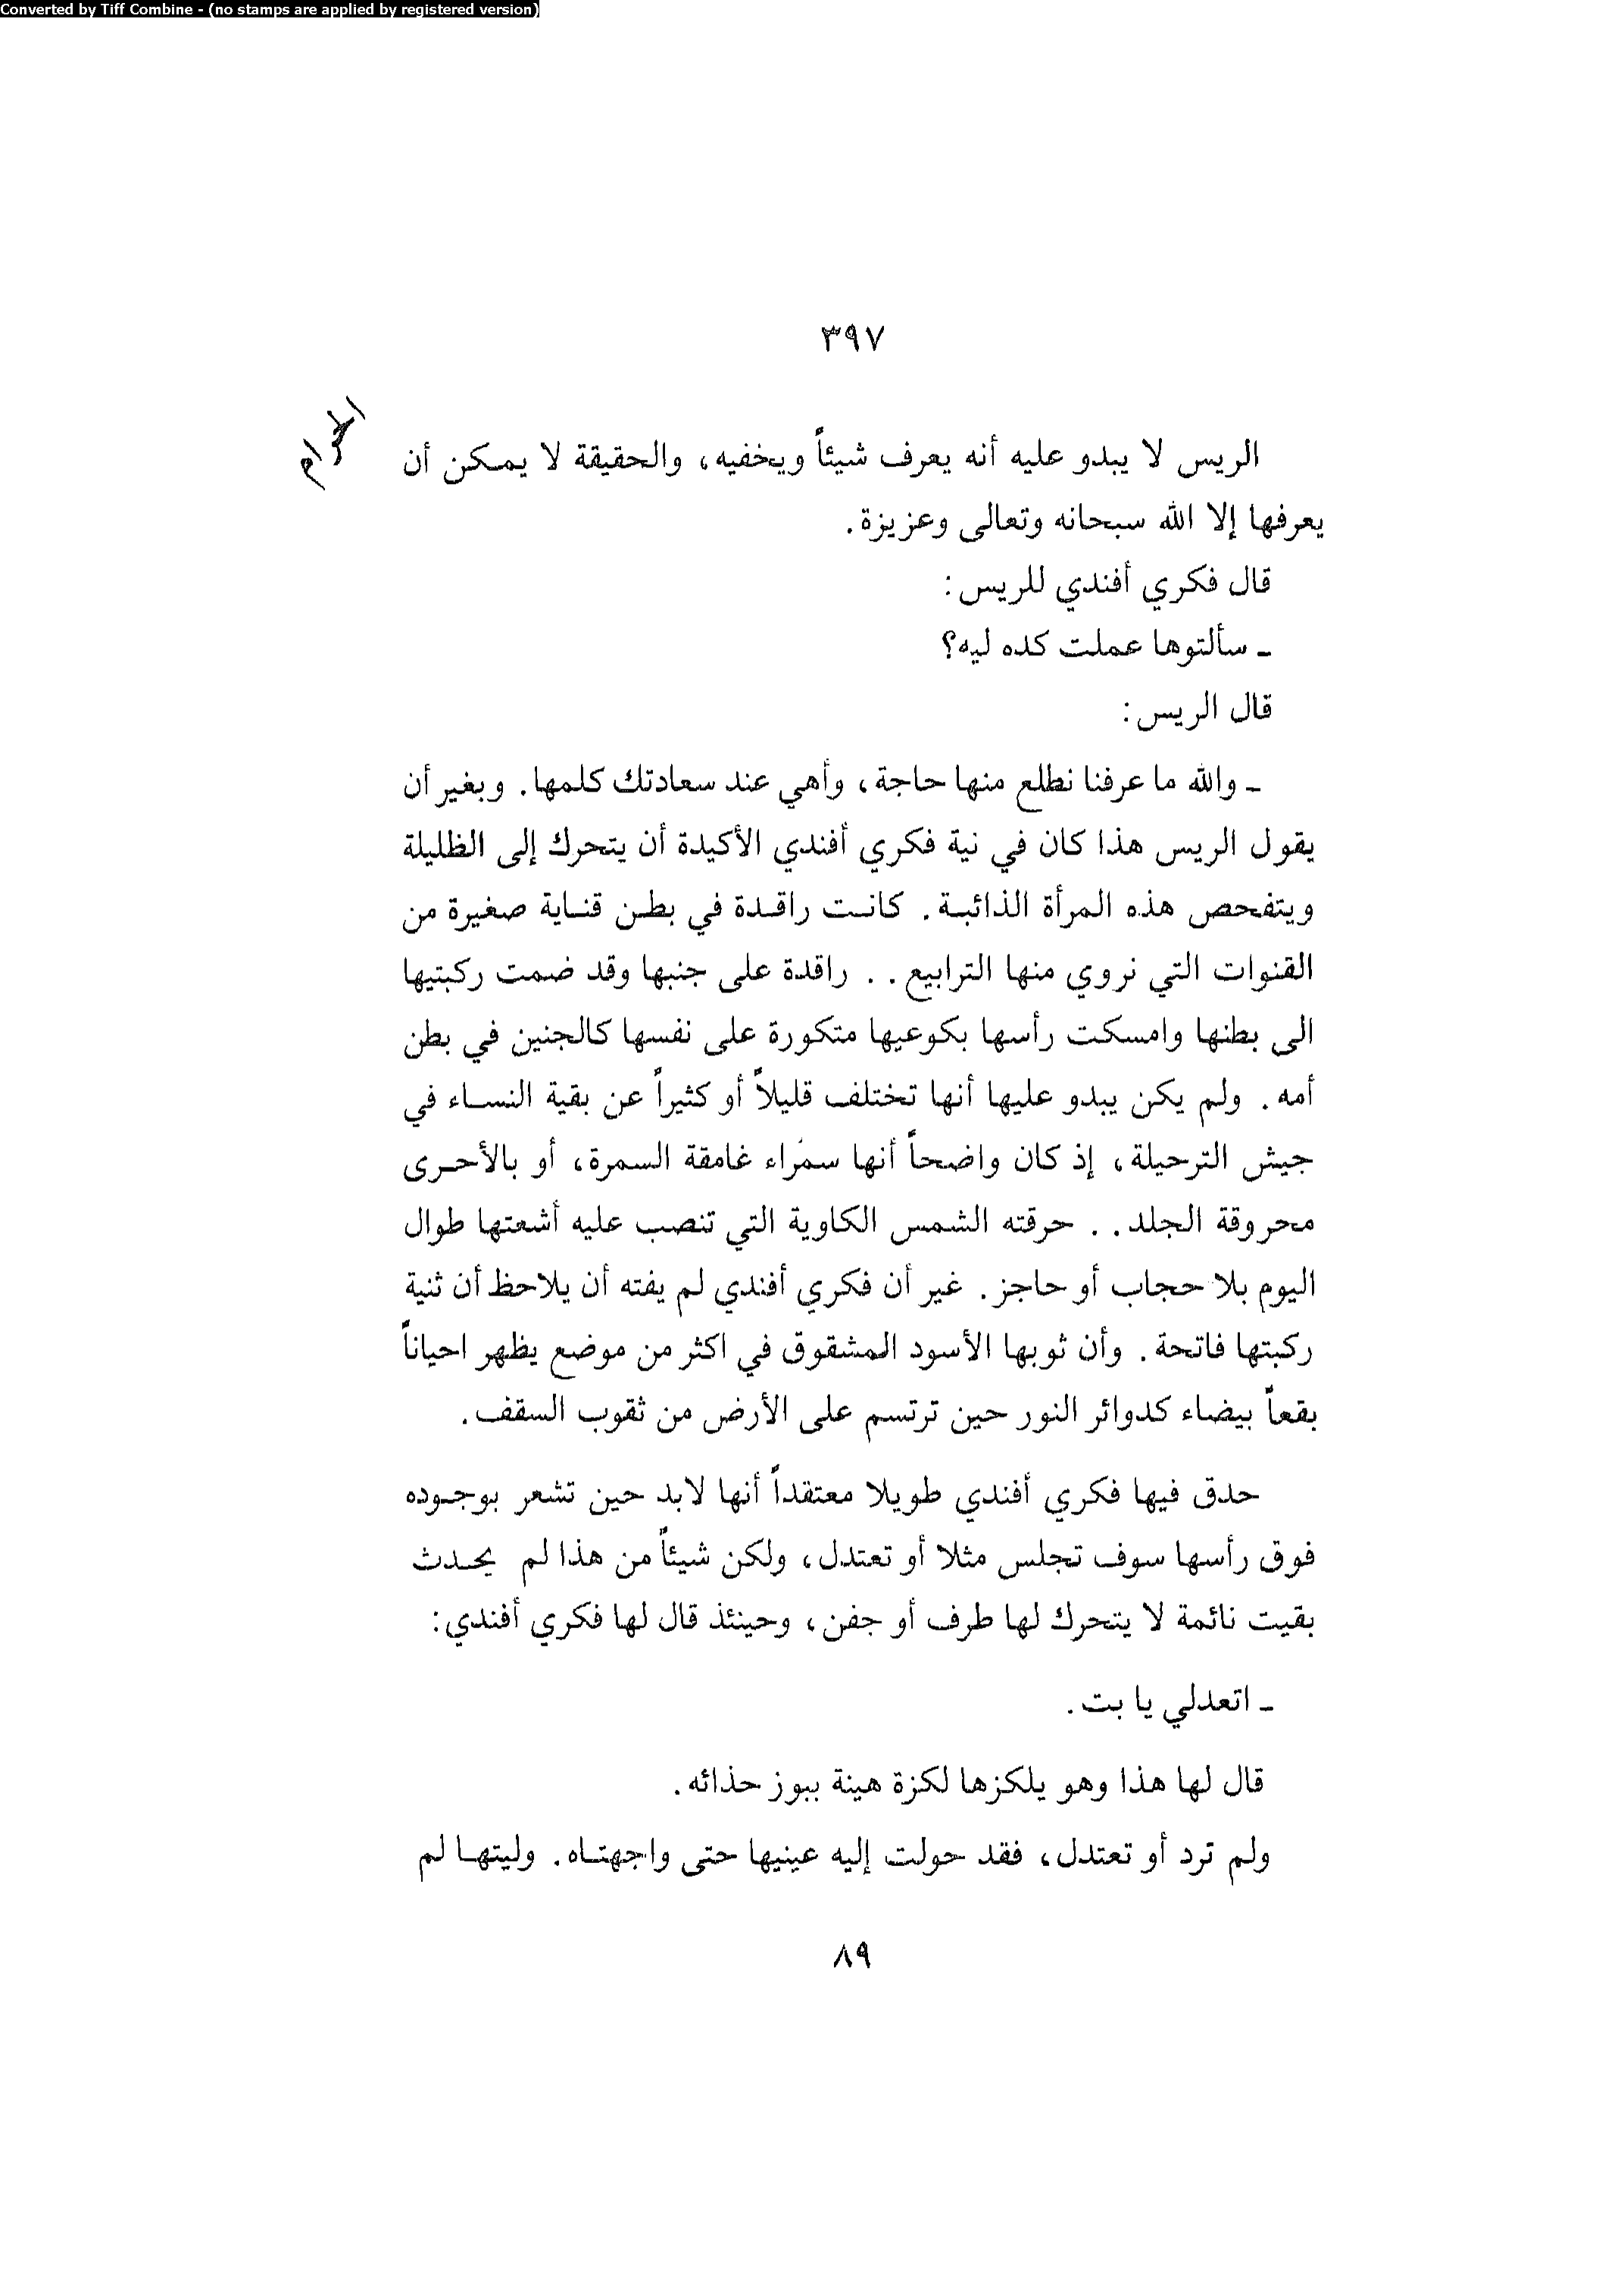 Converted by Tiff Combine - (no stamps are applied by registered version)
٣٩٧
الحرام
الريس لا يبدو عليه أنه يعرف شيئاً ويخفيه، والحقيقة لا يمكن أن
يعرفها إلا الله سبحانه وتعالى وعزيزة.
قال فكري أفندي للريس:
ـ سألتوها عملت كده ليه؟
قال الريس:
ـ والله ما عرفنا نطلع منها حاجة، وأهي عند سعادتك كلمها. وبغير أن
يقول الريس هذا كان في نية فكري أفندي الأكيدة أن يتحرك إلى الظليلة
ويتفحص هذه المرأة الذائبة. كانت راقدة في بطن قناية صغيرة من
القنوات التي نروي منها الترابيع.. راقدة على جنبها وقد ضمت ركبتيها
الى بطنها وامسكت رأسها بكوعيها متكورة على نفسها كالجنين في بطن
أمه. ولم يكن يبدو عليها أنها تختلف قليلاً أو كثيراً عن بقية النساء في
جيش الترحيلة، إذ كان واضحاً أنها سمراء غامقة السمرة، أو بالأحرى
محروقة الجلد.. حرقته الشمس الكاوية التي تنصب عليه أشعتها طوال
اليوم بلا حجاب أو حاجز. غير أن فكري أفندي لم يفته أن يلاحظ أن ثنية
ركبتها فاتحة. وأن ثوبها الأسود المشقوق في اكثر من موضع يظهر احياناً
بقعاً بيضاء كدوائر النور حين ترتسم على الأرض من ثقوب السقف.
حدق فيها فكري أفندي طويلا معتقداً أنها لابد حين تشعر بوجوده
فوق رأسها سوف تجلس مثلا أو تعتدل، ولكن شيئاً من هذا لم يحدث
بقيت نائمة لا يتحرك لها طرف أو جفن، وحينئذ قال لها فكري أفندي:
ـ اتعدلي يا بت.
قال لها هذا وهو يلكزها لكزة هينة ببوز حذائه.
ولم ترد أو تعتدل، فقد حولت إليه عينيها حتى واجهتاه. وليتها لم
٨٩